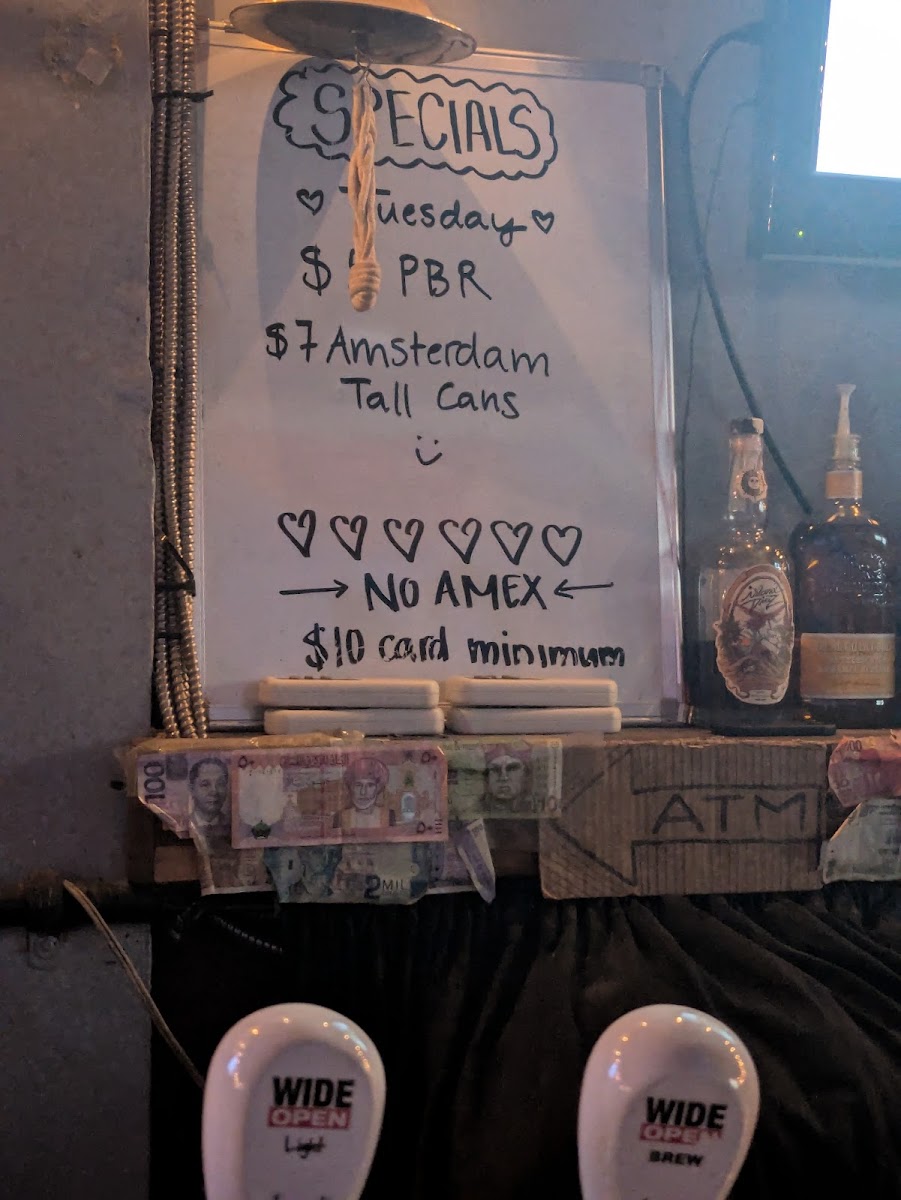 SPECIALS
Tuesday
$ PBR
$7 Amsterdam
Tall Cans
NO AMEX
$10 card minimum
100
٥٠
٥٠
2 MIL
ATM
100
WIDE
OPEN
Light
WIDE
OPEN
BREW